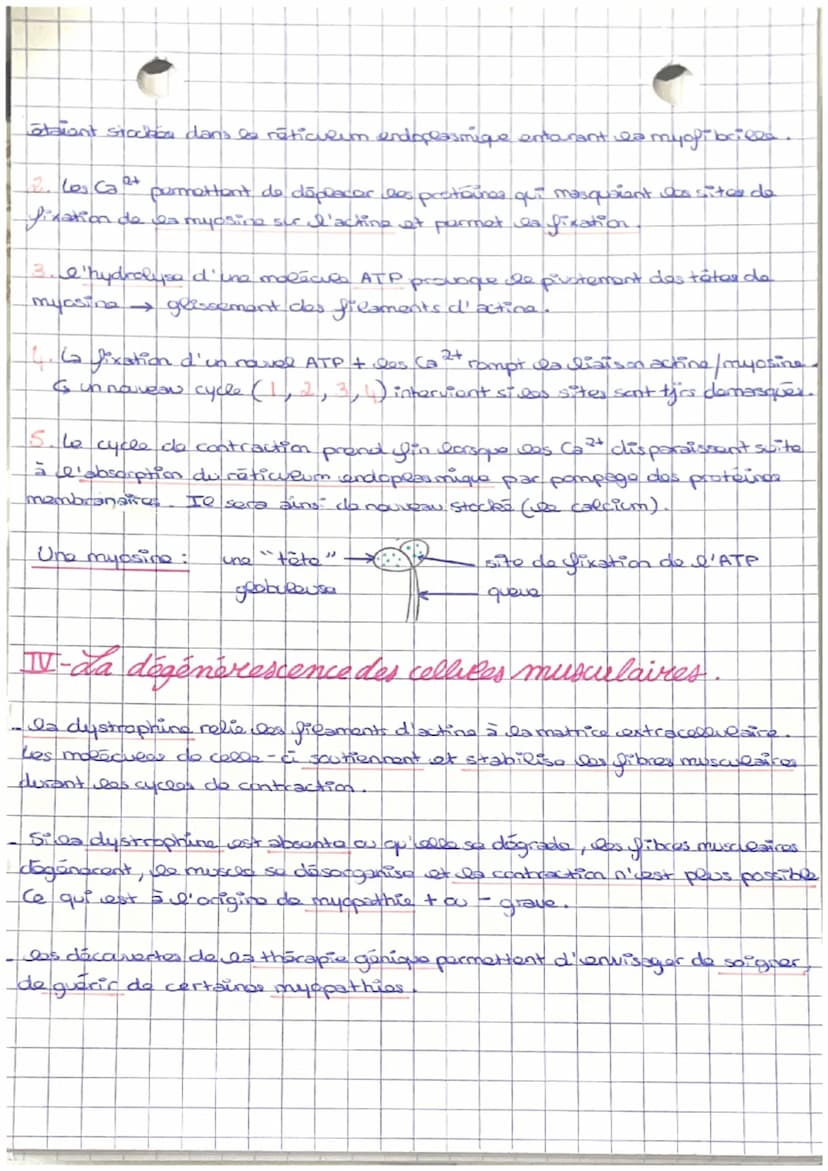 étaient stockés dans le réticulum endoplasmique entourant les myofibrilles.
2. Les Ca²⁺ permettent de déplacer les protéines qui masquaient les sites de
fixation de la myosine sur l'actine et permet la fixation.
3. L'hydrolyse d'une molécule ATP provoque le pivotement des têtes de
myosine → glissement des filaments d'actine.
4. La fixation d'un nouvel ATP + les Ca²⁺ rompt la liaison actine/myosine
↳ un nouveau cycle (1, 2, 3, 4) intervient si les sites sont tjrs démasqués.
5. Le cycle de contraction prend fin lorsque les Ca²⁺ disparaissent suite
à l'absorption du réticulum endoplasmique par pompage des protéines
membranaires. Il sera ainsi de nouveau stocké (le calcium).
Une myosine : une "tête" → site de fixation de l'ATP
globuleuse queue
IV - La dégénérescence des cellules musculaires.
- La dystrophine relie les filaments d'actine à la matrice extracellulaire.
Les molécules de celle-ci soutiennent et stabilise les fibres musculaires
durant les cycles de contraction.
- Si la dystrophine est absente ou qu'elle se dégrade, les fibres musculaires
dégénèrent, le muscle se désorganise et la contraction n'est plus possible
Ce qui est à l'origine de myopathie + ou - grave.
- Les découvertes de la thérapie génique permettent d'envisager de soigner,
de guérir de certaines myopathies.